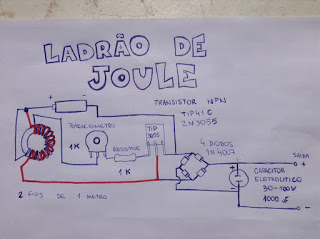 LADRÃO DE
JOULE
+
-
TRANSISTOR NPN
TIP41C
2N3055
POTENCIOMETRO
1K
RESISTOR
1K
TIP
3055
4 DIODOS
1N4007
SAIDA
+
CAPACITOR
ELETROLITICO
1000 uF
-
2 FIOS DE 1 METRO